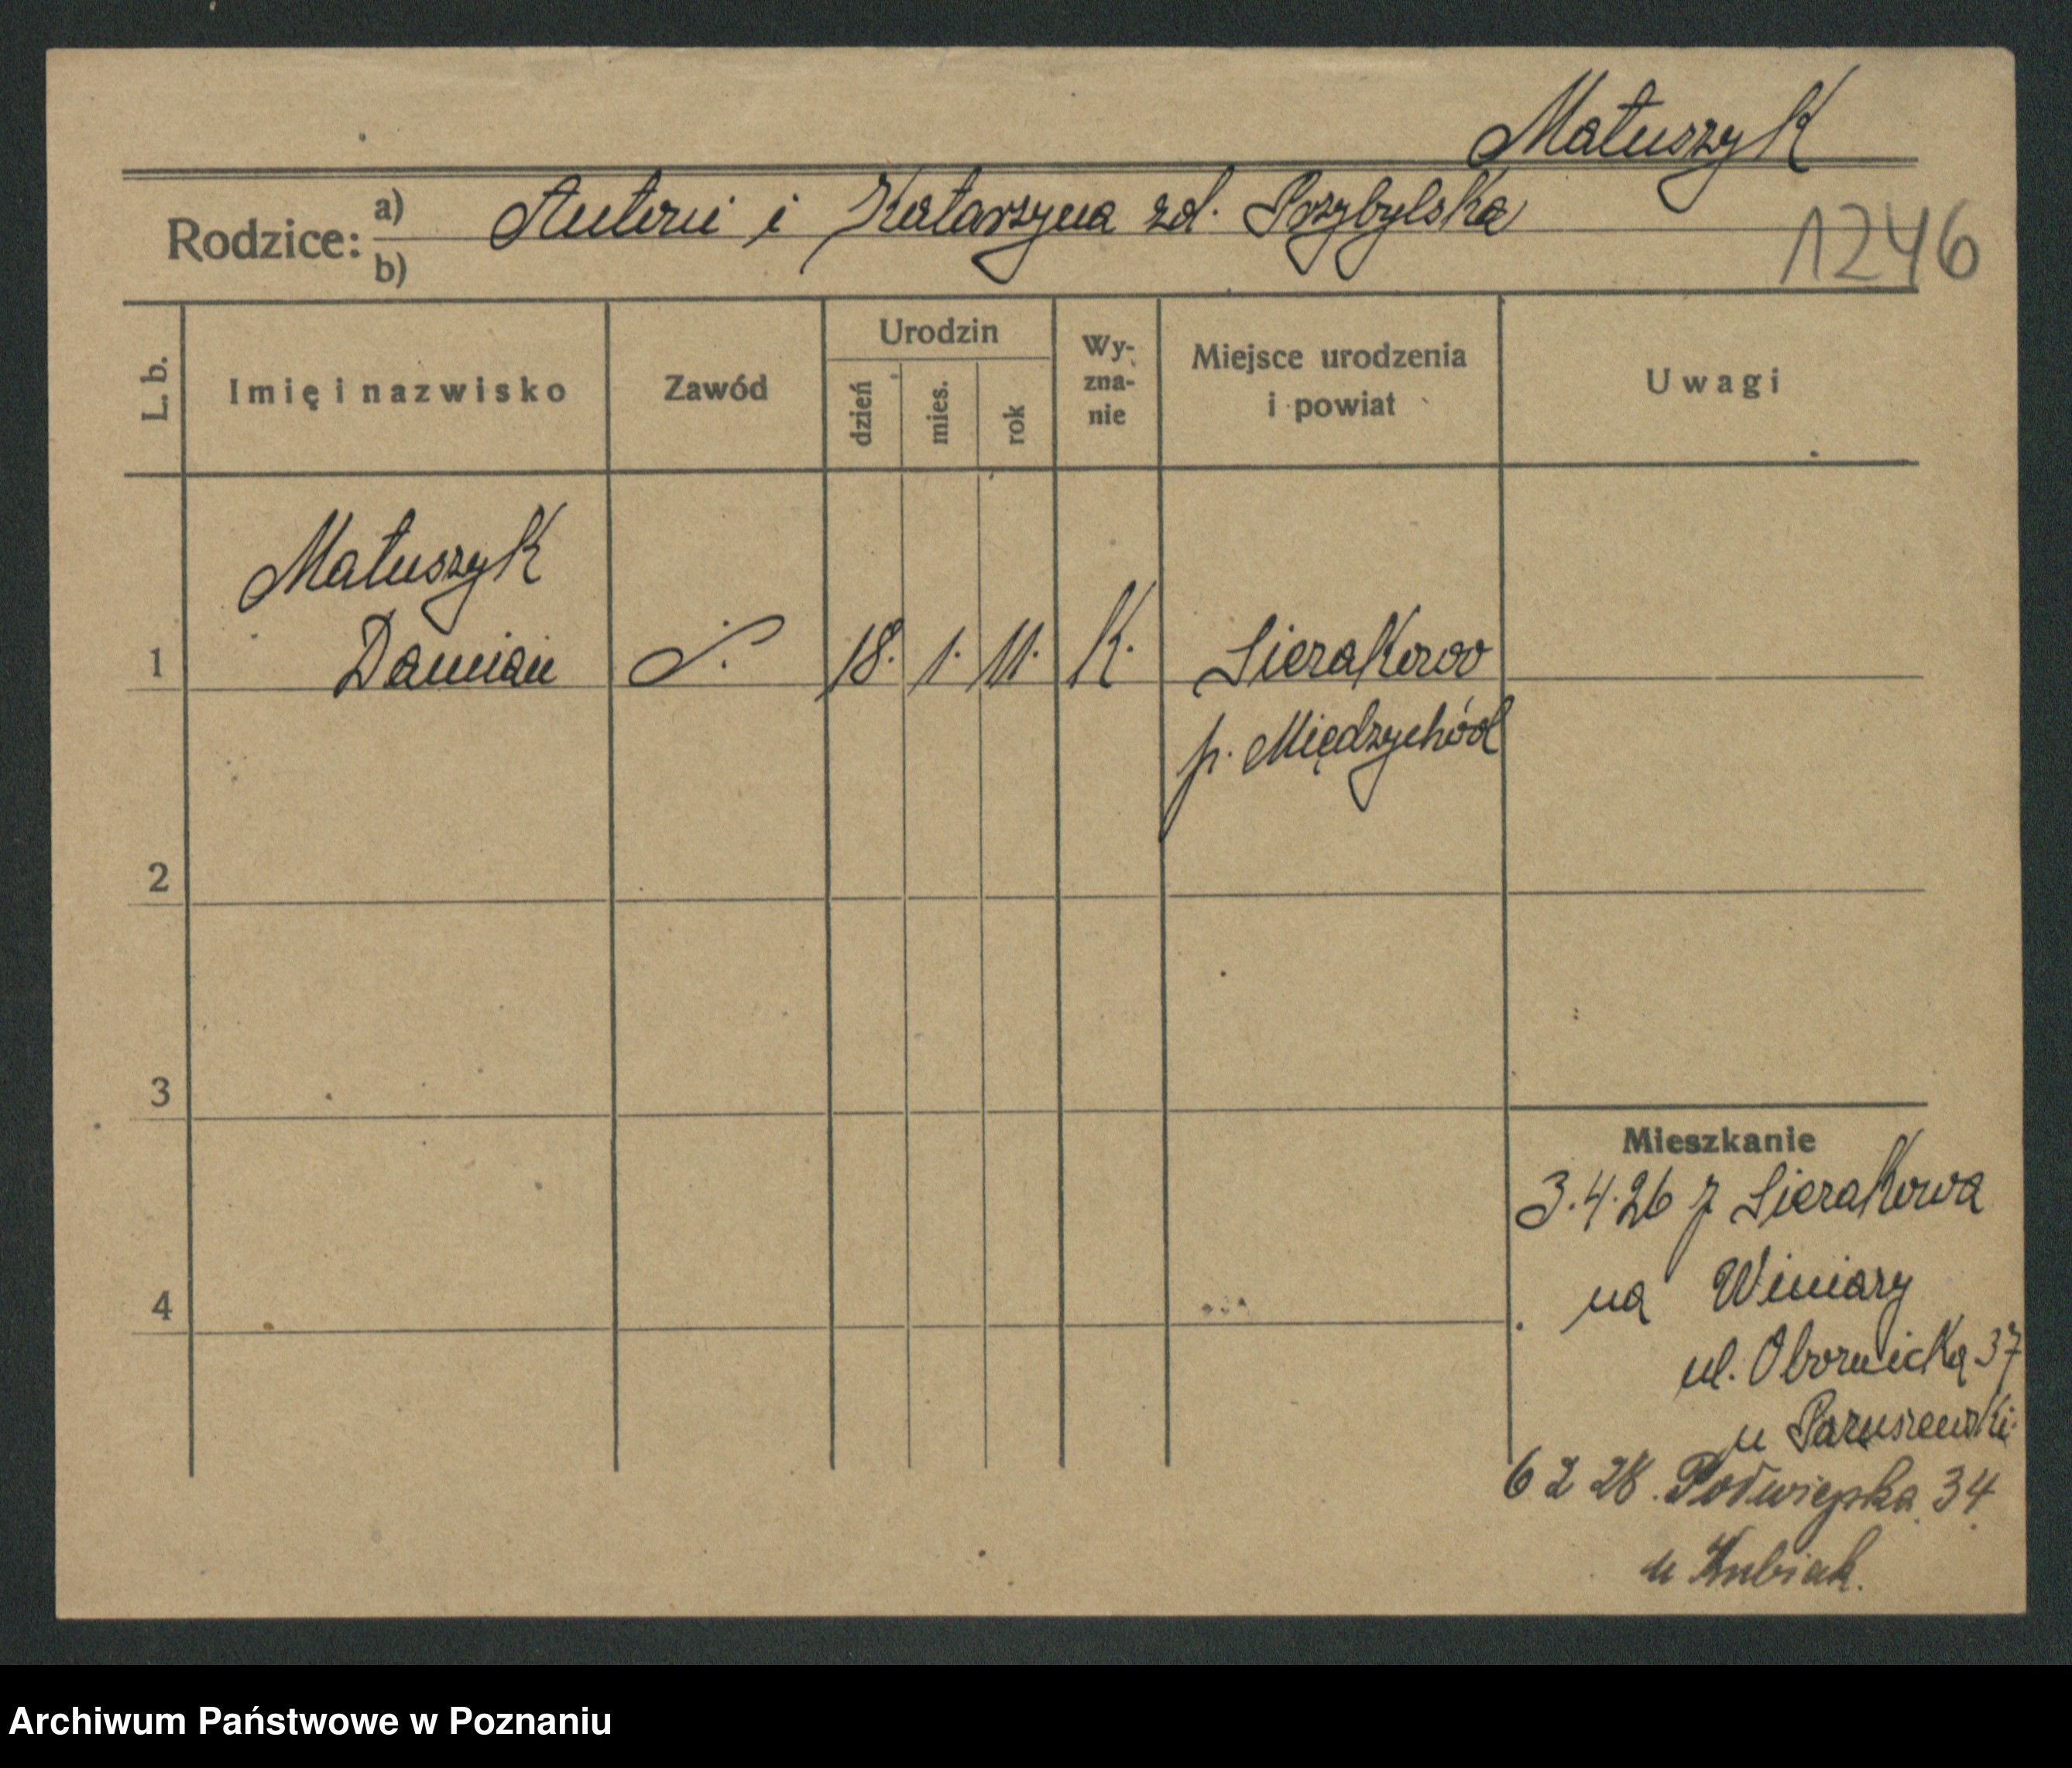 Matuszyk
Rodzice: a) Antoni i Katarzyna zd. Przybylska
b)
1246
L. b. Imię i nazwisko Zawód Urodzin dzień mies. rok Wy-zna-nie Miejsce urodzenia i powiat Uwagi
Matuszyk
1 Damian 18. 1. 11. K. Sierakowo
p. Międzychód
2
3
Mieszkanie
3.4.26 z Sierakowa
na Winiary
4
ul. Obornicka 37
u
6 2 28. Podwiejska 34
u Kubiak.
Archiwum Państwowe w Poznaniu